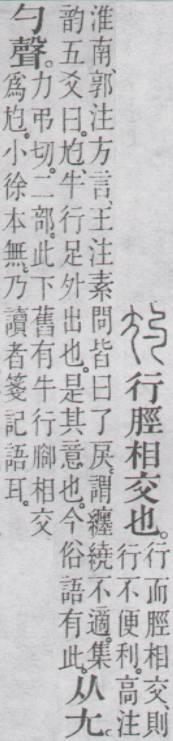 尥 行脛相交也。行而脛相交、則
行不便利。高注
淮南、郭注方言、王注素問皆曰了戾。謂纏繞不適。集
韵五爻曰。尥牛行足外出也。是其意也。今俗語有此。从尢。
勺聲。力弔切。二部。此下舊有牛行腳相交
爲尥。小徐本無。乃讀者箋記語耳。